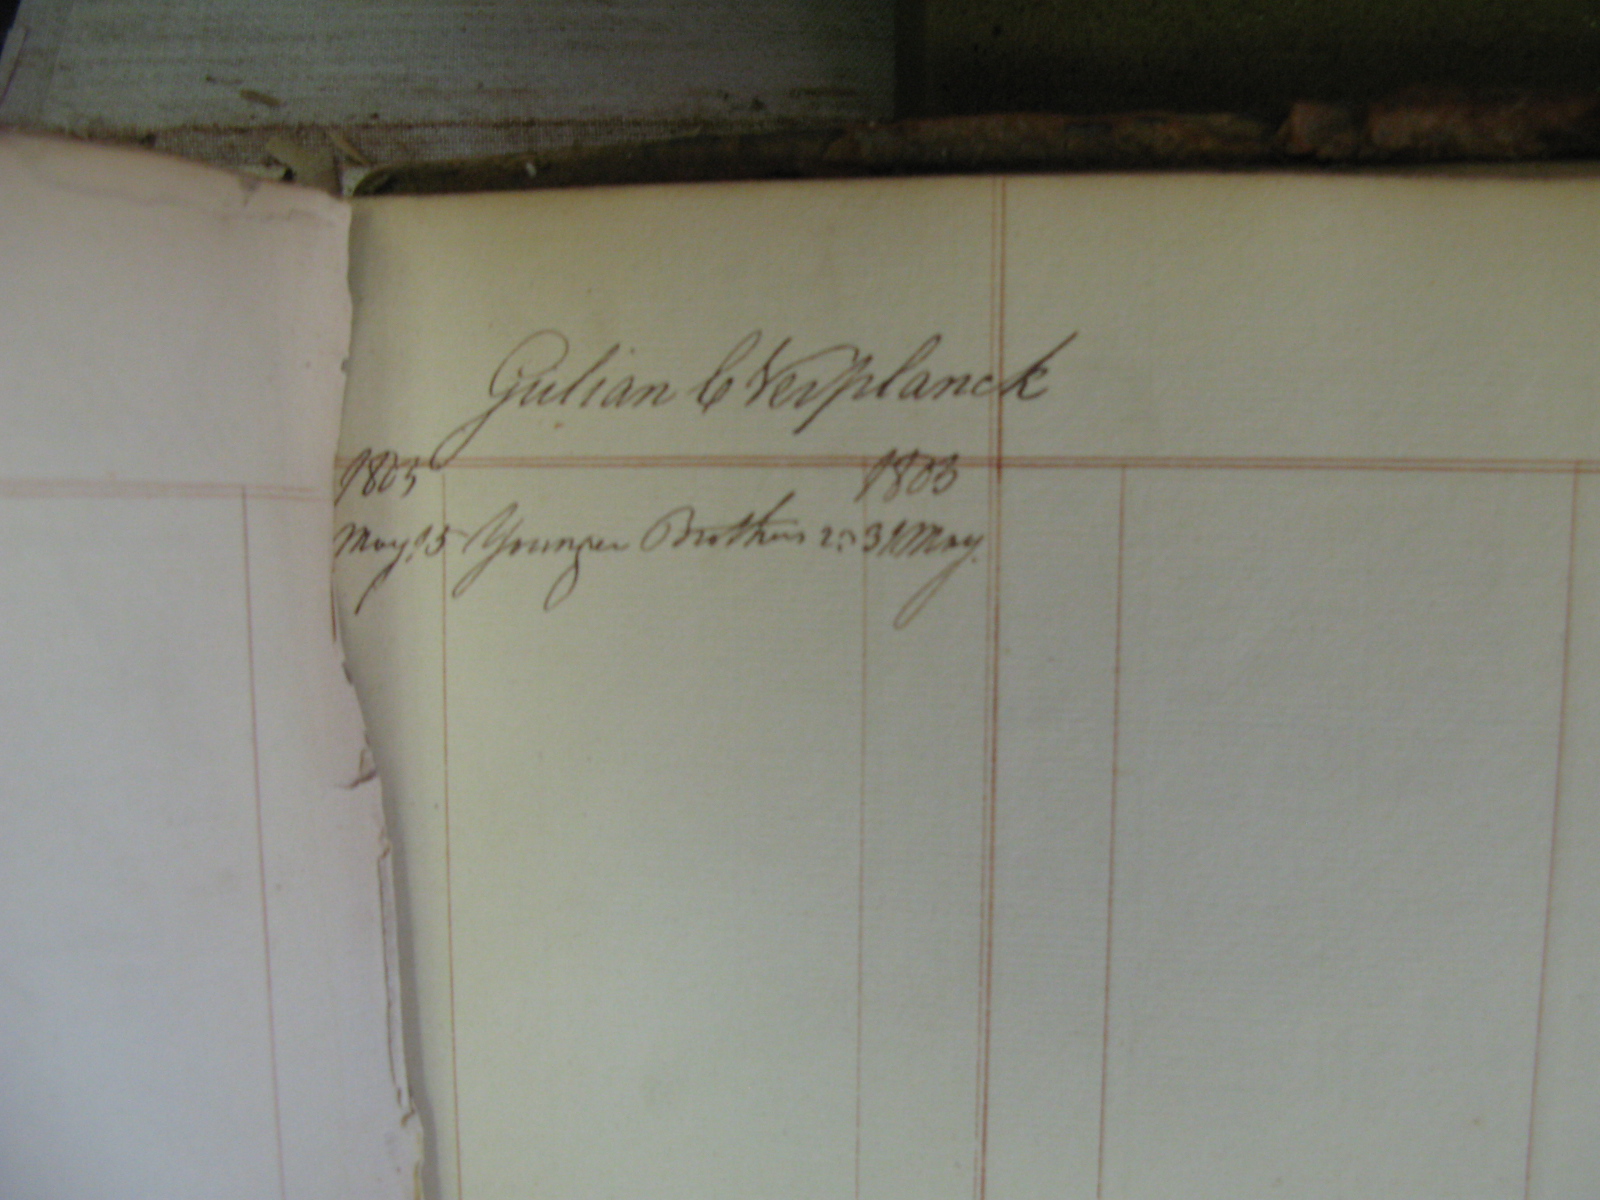 Gulian C Verplanck
1803 1803
May. 15 Younger Brother 2d 31 May.